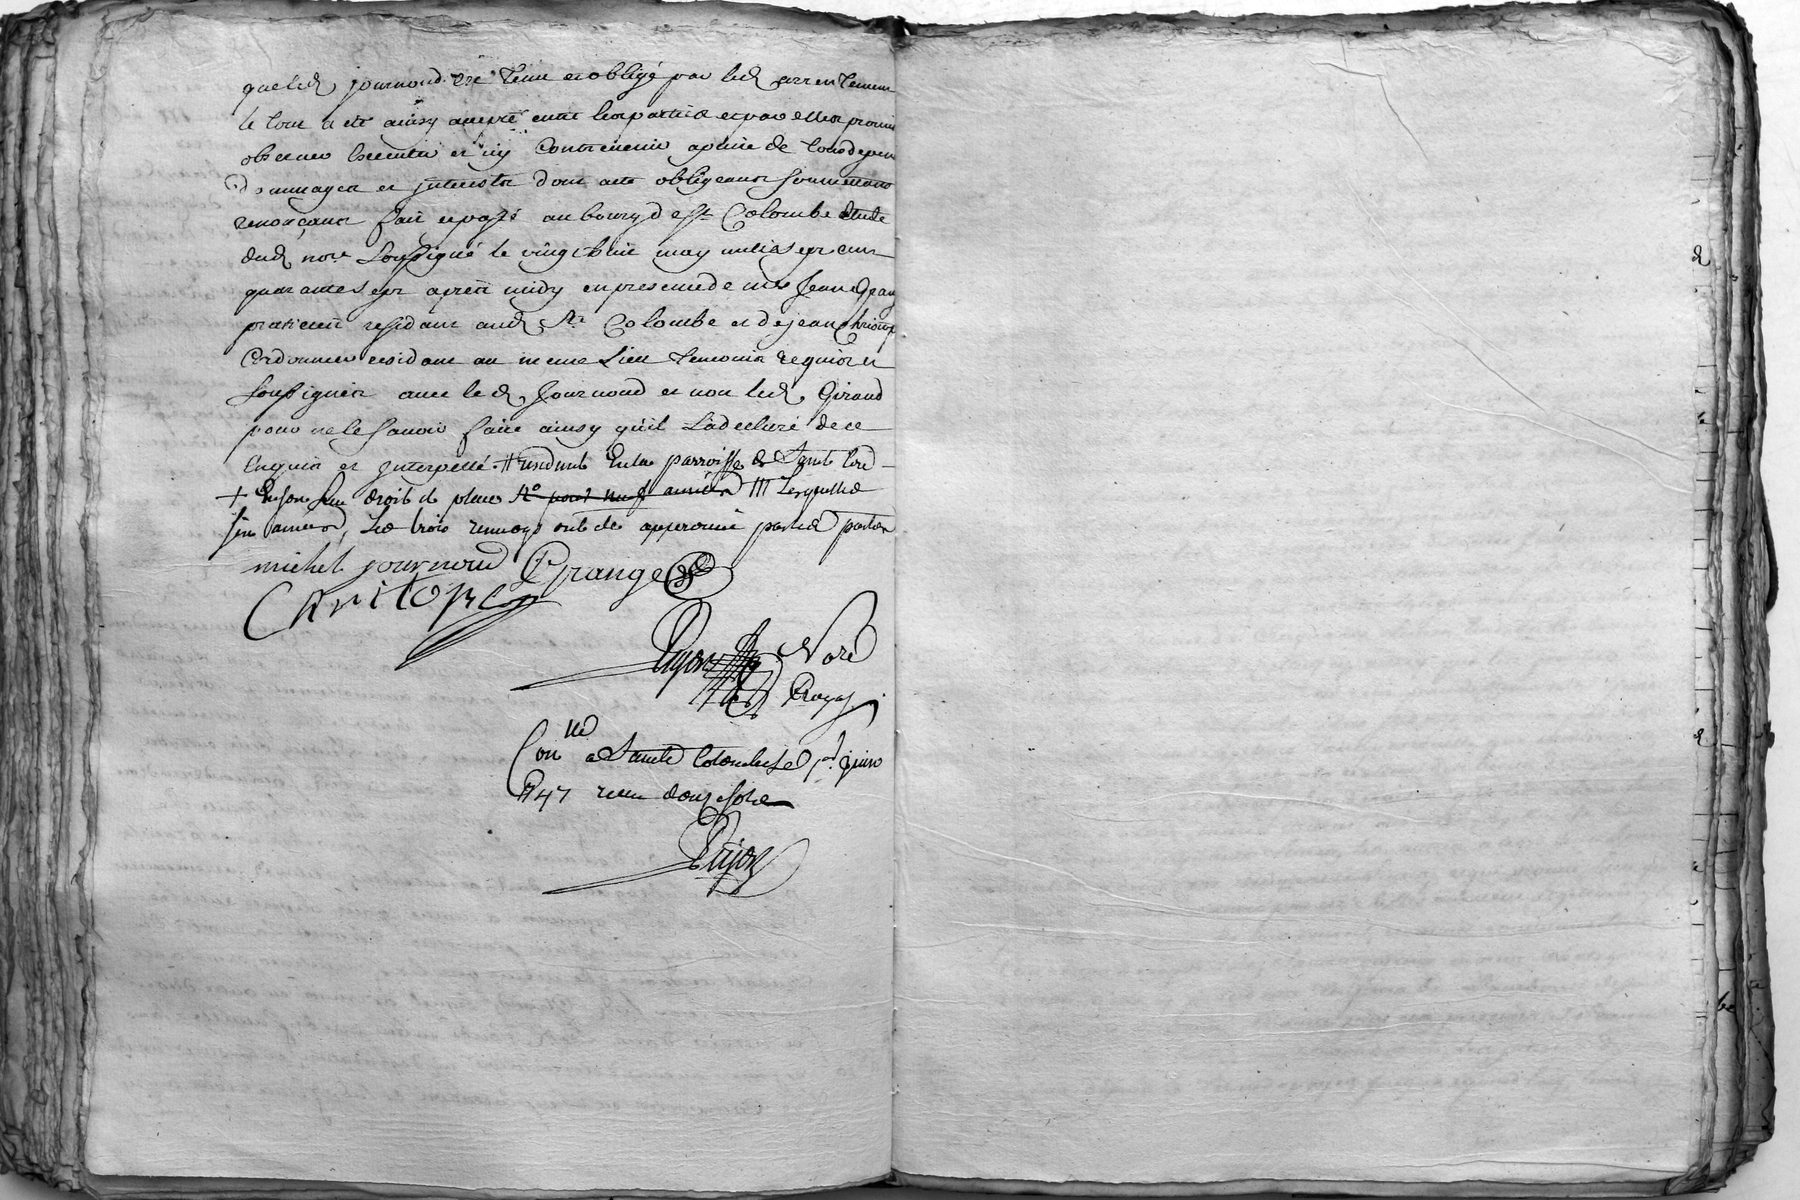 que led journoud est tenu et obligé par led arrentement
le tout a eté ainsy accepté entre les parties et par elles promis
observer executer et ny contrevenir apeine de tous depens
dommages et jnterests dont acte obligeant soumettant
renonçant fait et passé au bourg de ste Colombe étude
dud nore soussigné le vingt huit may mil sept cent
quarante sept après midy en presence de me Jean Grange
praticien residant aud Ste Colombe et de jean christophe
Cordonnier residant au meme lieu temoins requis et
soussignés avec led journoud et non led Giraud
pour ne le savoir faire ainsy qu'il l'a declaré de ce
enquis et jnterpellé en la parroisse de Sainte
+ droit de place pour neuf années
six années, les trois renvoys ont eté approuvé par les parties
michel journoud Grange
Chritople
Dujon Nore
Royal
Conllé a Sainte Colombe le 1er juin
1747 receu douze sols
Dujon